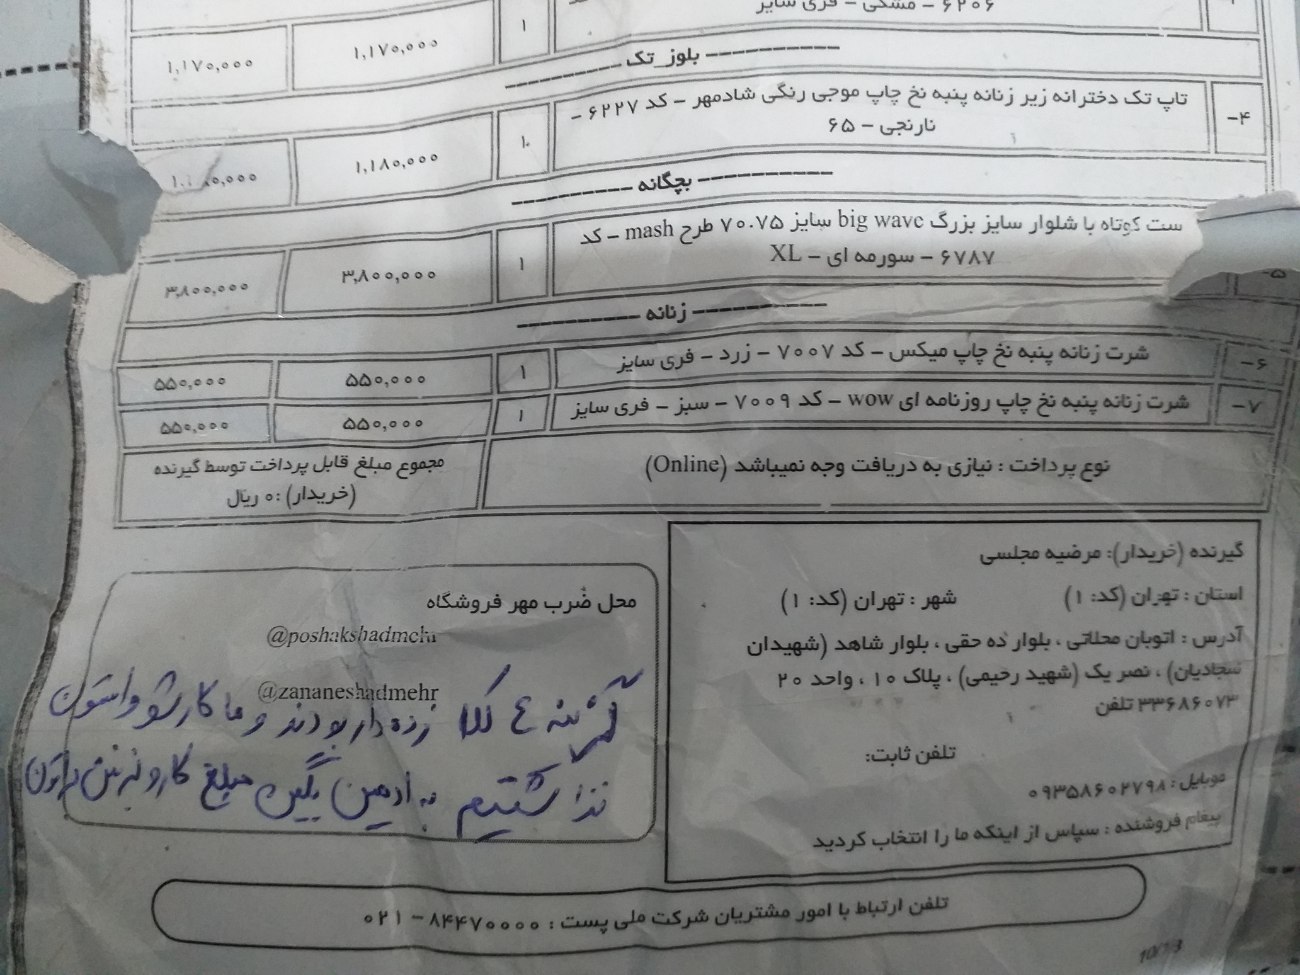 ۶۲۰۶ - مشکی - فری سایز
۱ ۱,۱۷۰,۰۰۰ ۱,۱۷۰,۰۰۰
---------- بلوز_تک ----------
۴- تاپ تک دخترانه زیر زنانه پنبه نخ چاپ موجی رنگی شادمهر - کد ۶۲۲۷ -
نارنجی - ۶۵
۱ ۱,۱۸۰,۰۰۰
---------- بچگانه ----------
ست کوتاه با شلوار سایز بزرگ big wave سایز ۷۰.۷۵ طرح mash - کد
۶۷۸۷ - سورمه ای - XL
۵- ۱ ۳,۸۰۰,۰۰۰ ۳,۸۰۰,۰۰۰
---------- زنانه ----------
۶- شرت زنانه پنبه نخ چاپ میکس - کد ۷۰۰۷ - زرد - فری سایز ۱ ۵۵۰,۰۰۰ ۵۵۰,۰۰۰
۷- شرت زنانه پنبه نخ چاپ روزنامه ای wow - کد ۷۰۰۹ - سبز - فری سایز ۱ ۵۵۰,۰۰۰ ۵۵۰,۰۰۰
نوع پرداخت : نیازی به دریافت وجه نمیباشد (Online)
مجموع مبلغ قابل پرداخت توسط گیرنده
(خریدار) :۰ ریال
گیرنده (خریدار): مرضیه مجلسی
استان : تهران (کد: ۱) شهر : تهران (کد: ۱)
آدرس : اتوبان محلاتی ، بلوار ده حقی ، بلوار شاهد (شهیدان
سجادیان) ، نصر یک (شهید رحیمی) ، پلاک ۱۰ ، واحد ۲۰
۳۳۶۸۶۰۷۳ تلفن
تلفن ثابت:
موبایل : ۰۹۳۵۸۶۰۲۷۹۸
پیغام فروشنده : سپاس از اینکه ما را انتخاب کردید
محل ضرب مهر فروشگاه
@poshakshadmehr
@zananeshadmehr
گزینه ۴ کلا زده دار بودند و ما کارشو واستون
نذاشتیم به ادمین بگین مبلغ کارو بزنن براتون
تلفن ارتباط با امور مشتریان شرکت ملی پست : ۸۴۴۷۰۰۰۰ - ۰۲۱